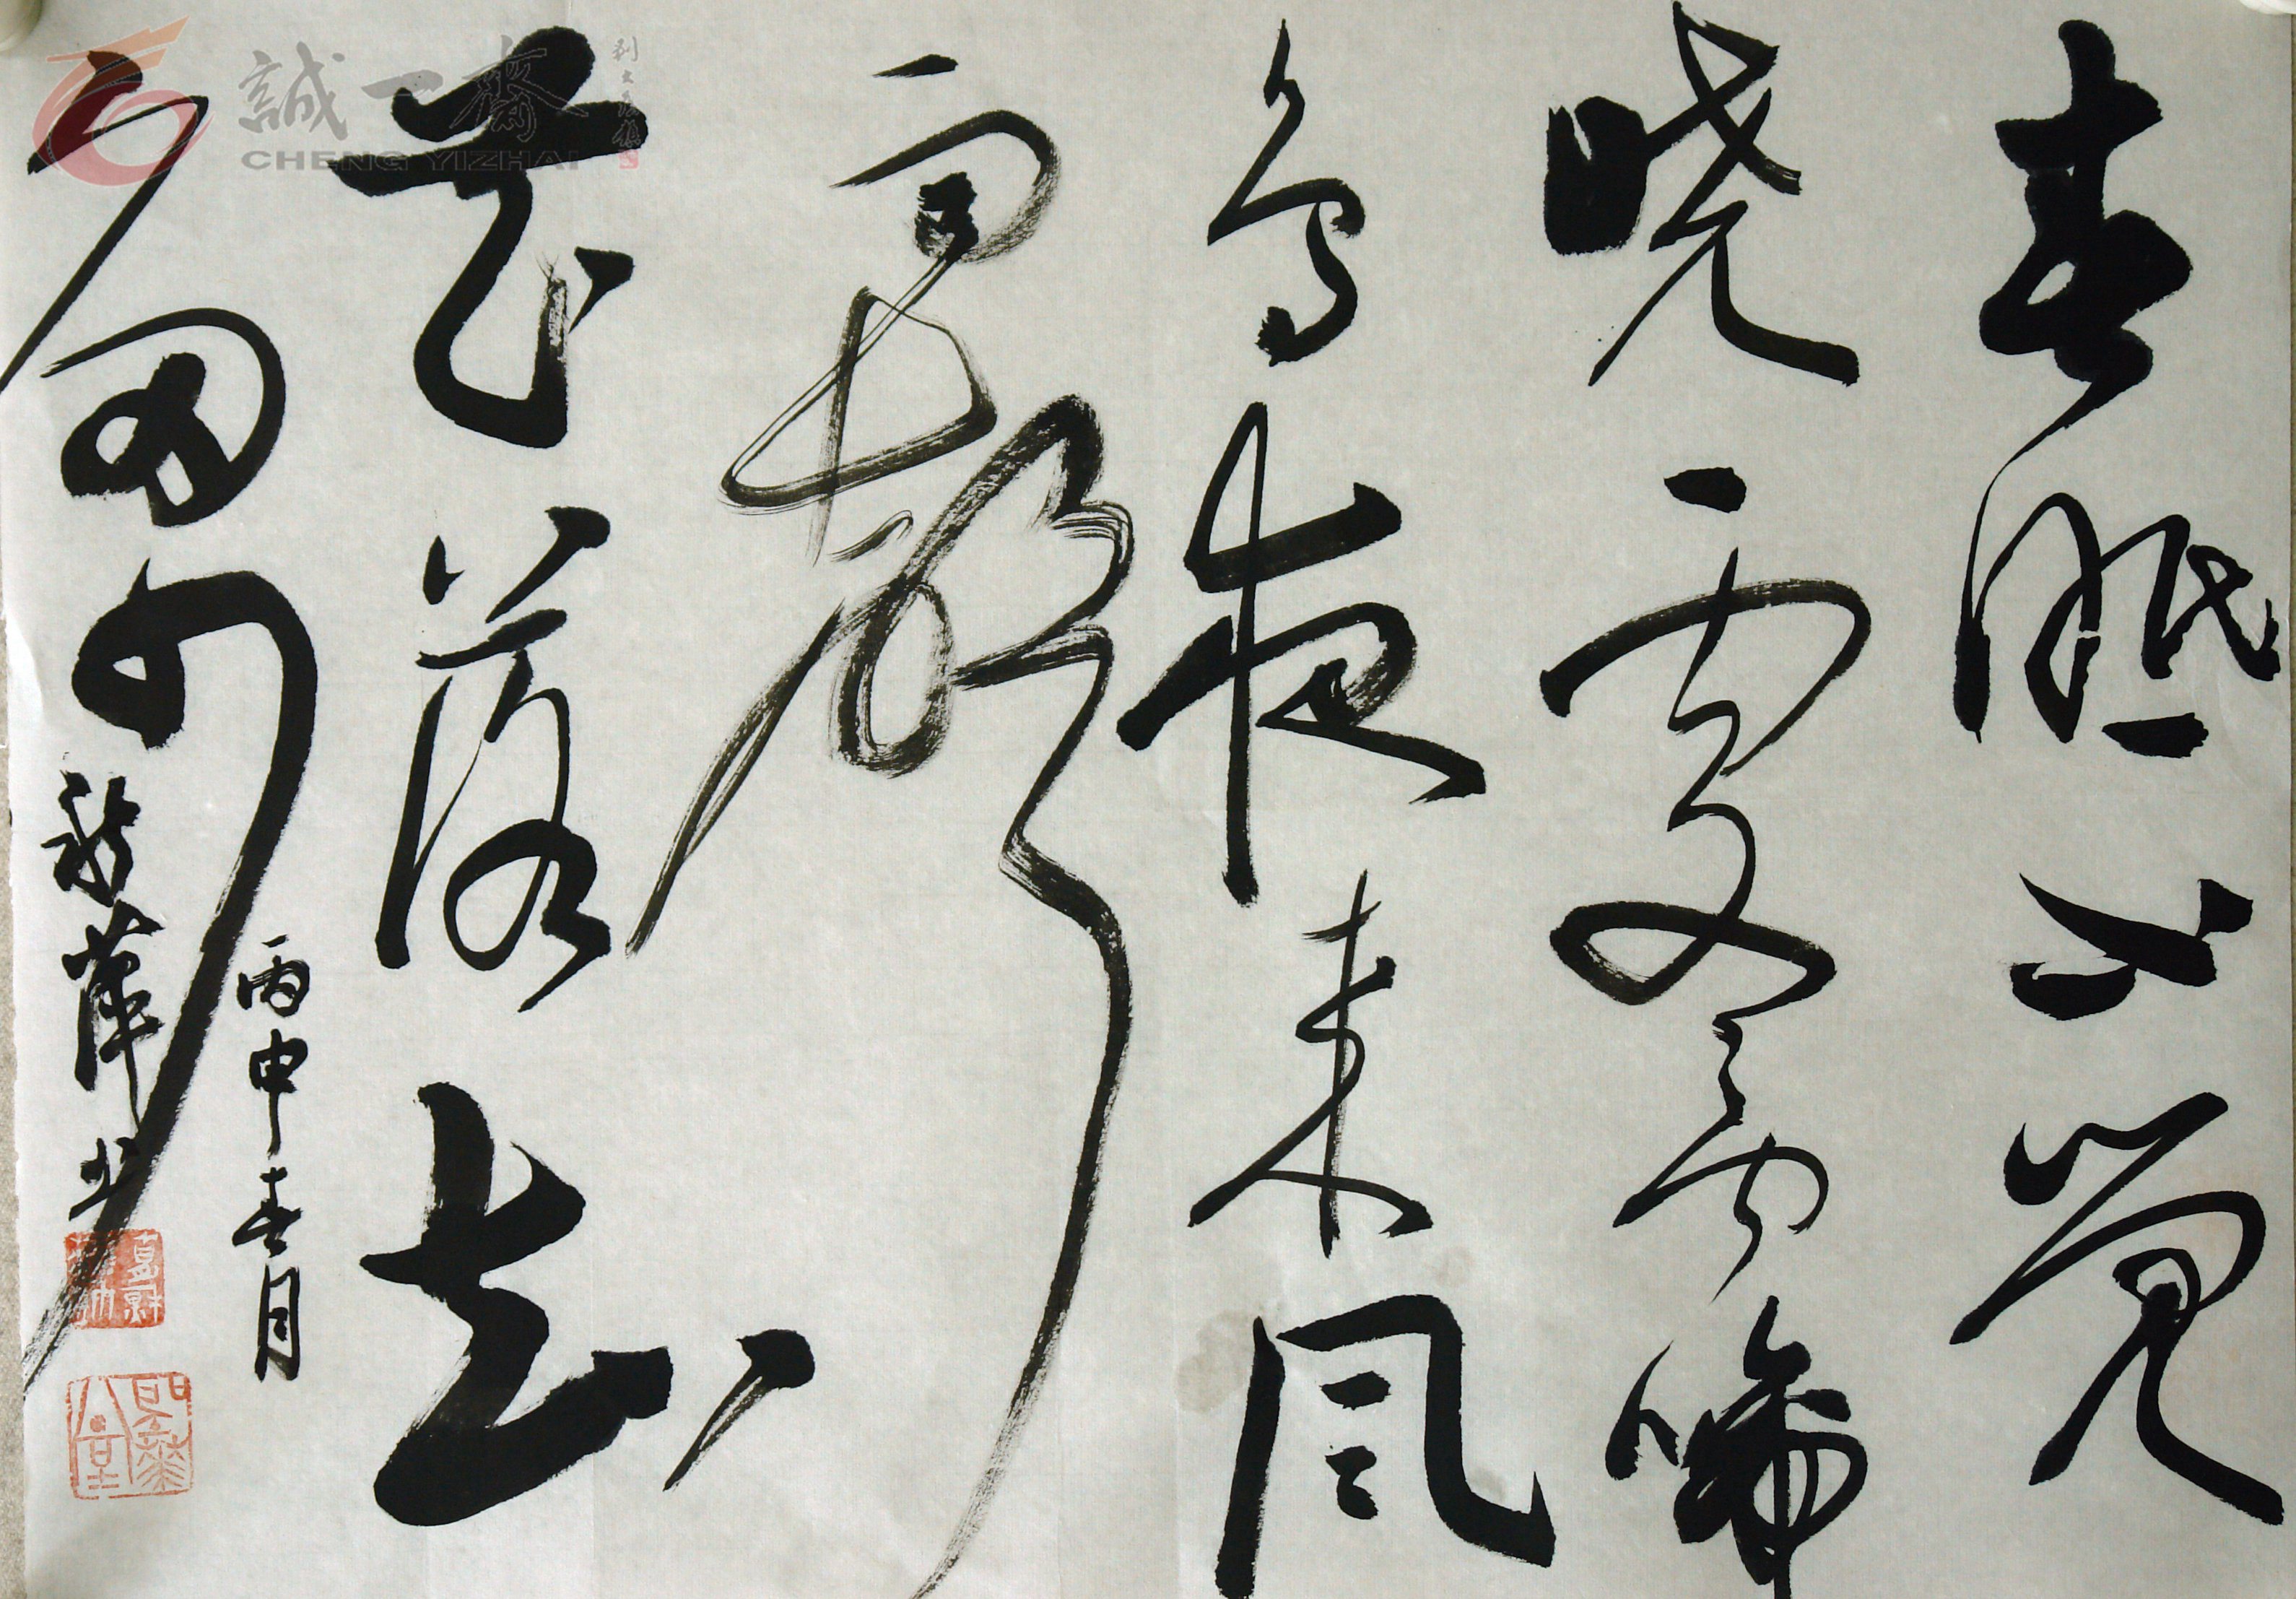 春眠不觉
晓处处闻啼
鸟夜来风
雨聲
花落知
多少
丙申春月
誠一齋
CHENG YIZHAI